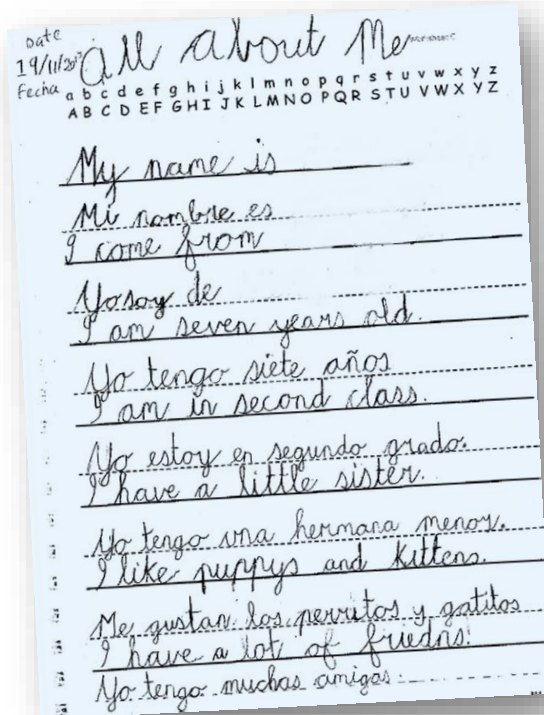 Date
All About Me
19/11/
Fecha
a b c d e f g h i j k l m n o p q r s t u v w x y z
A B C D E F G H I J K L M N O P Q R S T U V W X Y Z
My name is
Mi nombre es
I come from
Yo soy de
I am seven years old.
Yo tengo siete años
I am in second class.
Yo estoy en segundo grado.
I have a little sister.
Yo tengo una hermana menor.
I like puppys and kittens.
Me gustan los perritos y gatitos
I have a lot of friedns!
Yo tengo muchas amigas.